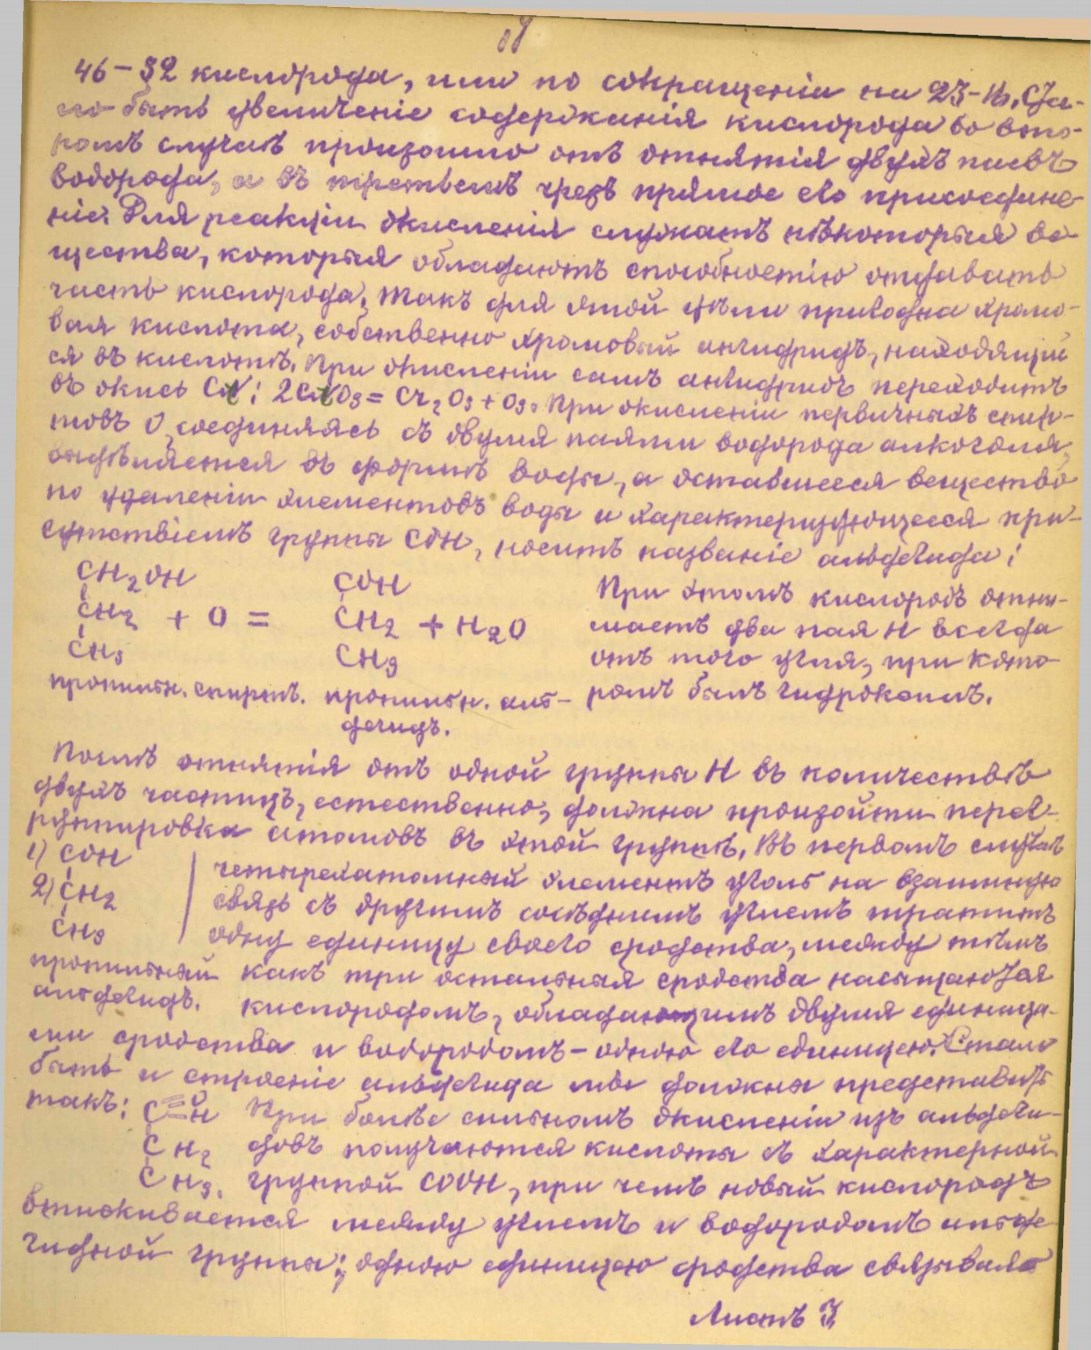 46 – 32 кислорода, или по сокращеніи на 23 – 16. Ста-
ло быть увеличеніе содержанія кислорода во вто-
ромъ случаѣ произошло отъ отнятія двухъ паевъ
водорода, а въ третьемъ чрезъ прямое его присоедине-
ніе. Для реакціи окисленія служатъ нѣкоторыя ве-
щества, которыя обладаютъ способностію отдавать
часть кислорода; такъ для этой цѣли пригодна хромо-
вая кислота, собственно хромовый ангидридъ, находящій
ся въ кислотѣ. При окисленіи самъ ангидридъ переходитъ
въ окись Cr: 2CrO3 = Cr2O3 + O3. При окисленіи первичныхъ спир-
товъ O, соединяясь съ двумя паями водорода алкоголя,
выдѣляется въ формѣ воды, а оставшееся вещество
по удаленіи элементовъ воды и характеризующееся при-
сутствіемъ группы COH, носитъ названіе альдегида:
CH2OH COH При этомъ кислородъ отни-
CH2 + O = CH2 + H2O маетъ два пая H всегда
CH3 CH3 отъ того угля, при кото-
пропильн. спиртъ. пропильн. аль- ромъ былъ гидроксилъ.
дегидъ.
Послѣ отнятія отъ одной группы H въ количествѣ
двухъ частицъ, естественно, должна произойти перег-
руппировка атомовъ въ этой группѣ. Въ первомъ случаѣ
1) COH четырехатомный элементъ уголь на взаимную
2) CH2 связь съ другимъ сосѣднимъ углемъ тратитъ
CH3 одну единицу своего сродства, между тѣмъ
пропильный какъ три остальныя сродства насыщаются
альдегидъ. кислородомъ, обладающимъ двумя единица-
ми сродства и водородомъ – одною его единицею. Стало
быть и строеніе альдегида мы должны представить
такъ: C=O H При болѣе сильномъ окисленіи изъ альдеги-
CH2 довъ получаются кислоты съ характерной
CH3. группой COOH, при чемъ новый кислородъ
втискивается между углемъ и водородомъ альде-
гидной группы; одною единицею сродства связывая
Листъ 3